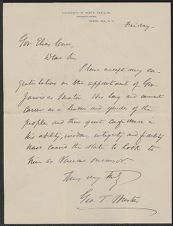 UNIVERSITY OF NORTH CAROLINA
Friday.
Gov Elias Carr,
Dear Sir
Please accept my con-
gratulations on the appointment of Gov
Jarvis as Senator. His long and
career as a leader and of the
people and their great confidence in
his ability, wisdom, integrity and fidelity
have caused the state to look to
him as Vance successor
Very truly
Geo T. Winston